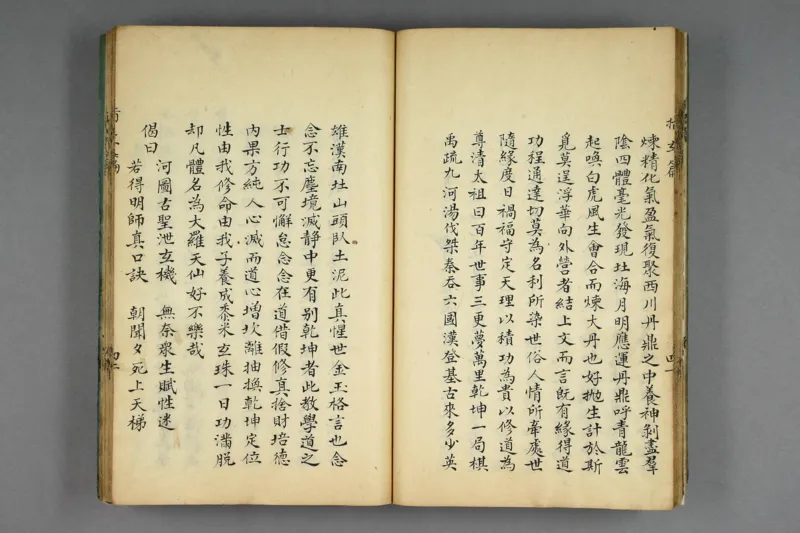 煉精化氣盈氣復聚西川丹鼎之中養神剝盡羣
陰四體毫光發現北海月明應運丹鼎呼青龍雲
起喚白虎風生會合而煉大丹也好拋生計於斯
覓莫逞浮華向外營者結上文而言既有緣得道
功程通達切莫為名利所染世俗人情所牽處世
隨緣度日禍福守定天理以積功為貴以修道為
尊清太祖曰百年世事三更夢萬里乾坤一局棋
禹疏九河湯伐桀秦吞六國漢登基古來多少英
雄漢南北山頭臥土泥此真惺世金玉格言也念
念不忘塵境滅靜中更有別乾坤者此教學道之
士行功不可懈怠念念在道借假修真捨財培德
內果方純人心滅而道心增坎離抽換乾坤定位
性由我修命由我子養成黍米玄珠一日功滿脫
却凡體名為大羅天仙好不樂哉
偈曰
河圖古聖泄玄機　無奈衆生賦性迷
若得明師真口訣　朝聞夕死上天梯